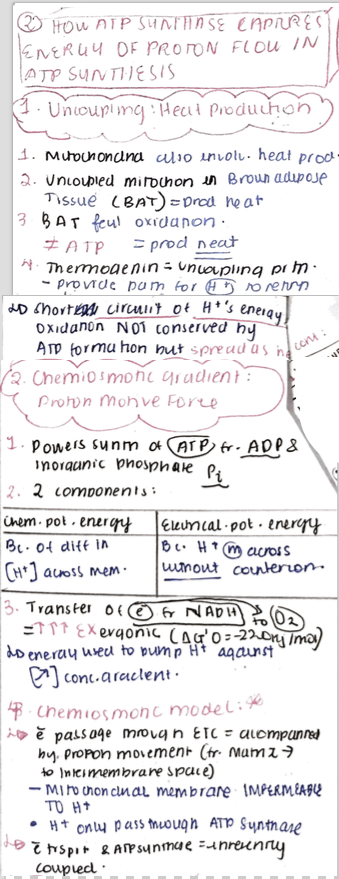 ② HOW ATP SYNTHASE CAPTURES
ENERGY OF PROTON FLOW IN
ATP SYNTHESIS
1. Uncoupling: Heat Production
1. Mitochondria also involv. heat prod.
2. Uncoupled mitochon in Brown adipose
Tissue (BAT) = prod heat
3 BAT feul oxidation.
≠ ATP = prod heat
4. Thermogenin = uncoupling prtn.
- provide path for H+ to return
↳ short circuit of H+'s energy
Oxidation NOT conserved by
ATP formation but spread as heat
2. Chemiosmotic gradient:
Proton Motive Force
1. Powers synth of ATP fr. ADP &
inorganic phosphate Pi
2. 2 components:
Chem. pot. energy Electrical. pot. energy
Bc. of diff in Bc. H+ m across
[H+] across mem. without counterion.
3. Transfer of e- fr NADH to O2
= ↑↑↑ EXergonic (ΔG'O = -220kJ/mol)
↳ energy used to pump H+ against
[↗] conc. gradient.
4. Chemiosmotic model:
↳ e- passage through ETC = accompanied
by. proton movement (fr Matrix →
to intermembrane space)
- Mitochondrial membrane IMPERMEABLE
TO H+
• H+ only pass through ATP Synthase
↳ e- trspit & ATP synthase = inherently
coupled.